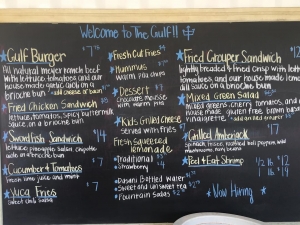 Welcome to The Gulf!!
Gulf Burger $7
All natural meyer ranch beef
with lettuce, tomatoes and our
house made garlic aioli on a
brioche bun
Fried Chicken Sandwich $8
lettuce, tomatoes, spicy buttermilk
sauce on a brioche bun
Swordfish Sandwich $14
lettuce, pineapple salsa, chipotle
aioli on a brioche bun
Cucumber & Tomatoes $7
fresh lime juice and mint
Yuca Fries $7
Fresh Cut Fries $4
Hummus $7
warm pita chips
Dessert $7
chocolate pecan
with warm
Kids Grilled Cheese $7
served with fries
Fresh squeezed
lemonade
Traditional $3
Strawberry $4
Dasani Bottled Water
Sweet and un sweet tea
Fountain Sodas $2
Fried Grouper Sandwich
lightly breaded & fried crisp with lettuce,
tomatoes and our house made lemon
tartar sauce on a brioche bun
Mixed Green Salad
mixed greens, cherry tomatoes, and a
house made, gluten free, brown balsamic
vinaigrette
Grilled Amberjack $17
Peel & Eat Shrimp 1/2 lb $12
1 lb
Now Hiring